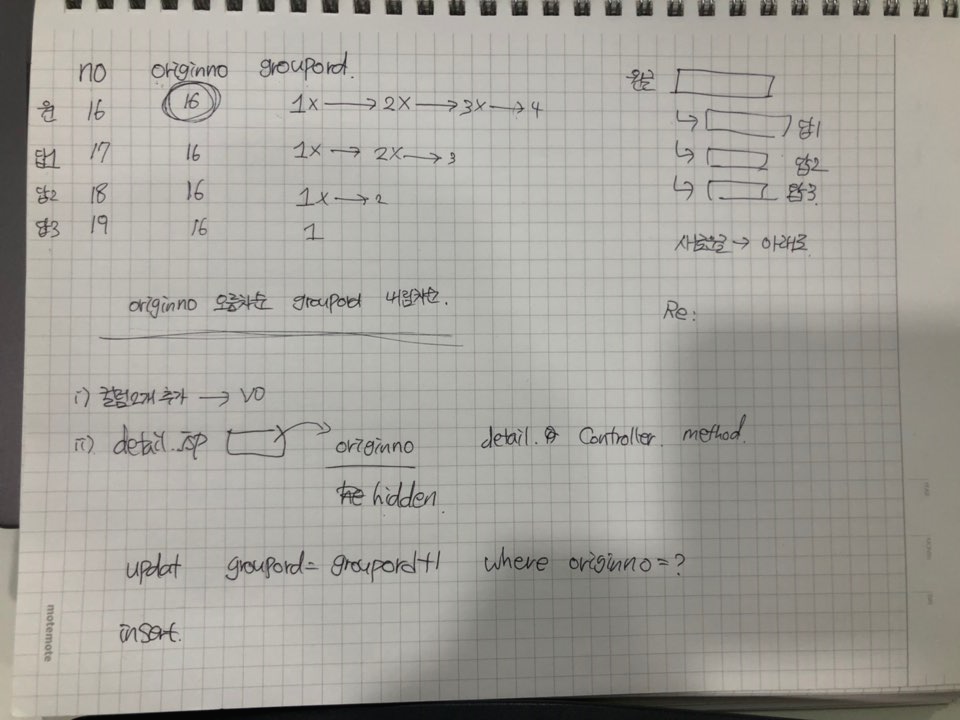 no originno groupord.
원 16 16 1x → 2x → 3x → 4
답1 17 16 1x → 2x → 3
답2 18 16 1x → 2
답3 19 16 1
원글
답1
답2
답3
새로운글 → 아래로
originno 오름차순 groupord 내림차순.
Re:
i) 컬럼2개 추가 → VO
ii) detail.jsp originno detail. Controller. method.
hidden.
updat groupord = groupord+1 where originno = ?
insert.
motemote